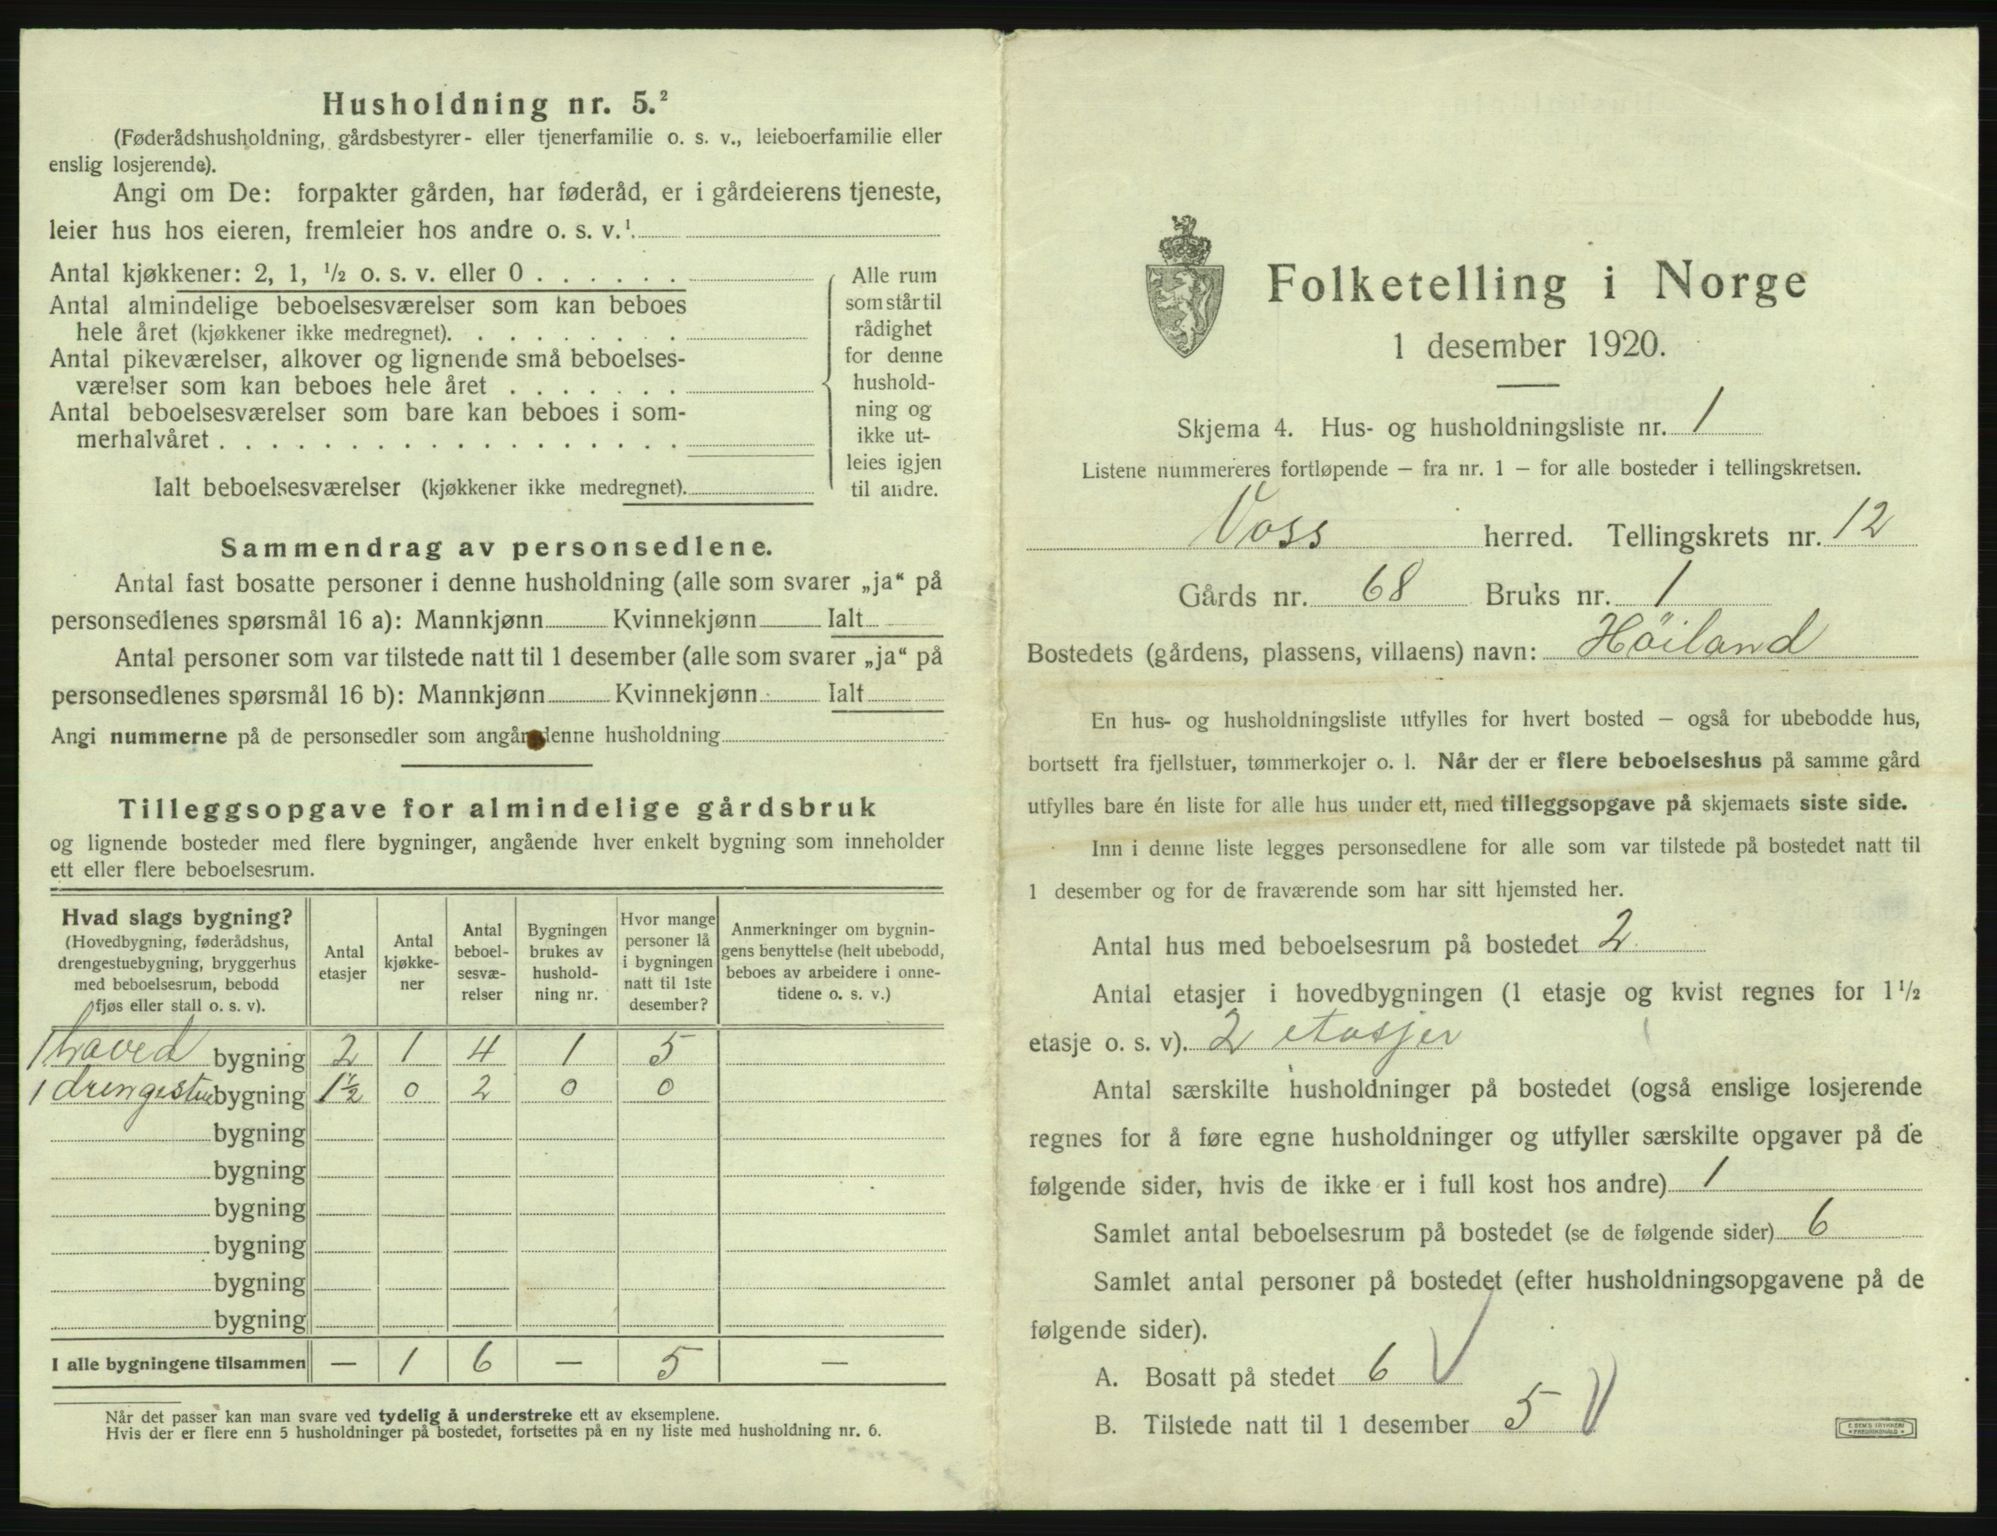 Husholdning nr. 5.²
(Føderådshusholdning, gårdsbestyrer- eller tjenerfamilie o. s. v., leieboerfamilie eller
enslig losjerende).
Angi om De: forpakter gården, har føderåd, er i gårdeierens tjeneste,
leier hus hos eieren, fremleier hos andre o. s. v.¹.
Antal kjøkkener: 2, 1, ½ o. s. v. eller 0 . . . . . .
Antal almindelige beboelsesværelser som kan beboes
hele året (kjøkkener ikke medregnet). . . . . . . . .
Antal pikeværelser, alkover og lignende små beboelses-
værelser som kan beboes hele året . . . . . . .
Antal beboelsesværelser som bare kan beboes i som-
merhalvåret . . . . . . . . . . . . . . . . . .
Ialt beboelsesværelser (kjøkkener ikke medregnet).
Alle rum
som står til
rådighet
for denne
hushold-
ning og
ikke ut-
leies igjen
til andre.
Sammendrag av personsedlene.
Antal fast bosatte personer i denne husholdning (alle som svarer „ja“ på
personsedlenes spørsmål 16 a): Mannkjønn Kvinnekjønn Ialt
Antal personer som var tilstede natt til 1 desember (alle som svarer „ja“ på
personsedlenes spørsmål 16 b): Mannkjønn Kvinnekjønn Ialt
Angi nummerne på de personsedler som angår denne husholdning
Tilleggsopgave for almindelige gårdsbruk
og lignende bosteder med flere bygninger, angående hver enkelt bygning som inneholder
ett eller flere beboelsesrum.
Hvad slags bygning?
(Hovedbygning, føderådshus,
drengestuebygning, bryggerhus
med beboelsesrum, bebodd
fjøs eller stall o. s. v).
Antal
etasjer
Antal
kjøkke-
ner
Antal
beboel-
sesvæ-
relser
Bygningen
brukes av
hushold-
ning nr.
Hvor mange
personer lå
i bygningen
natt til 1ste
desember?
Anmerkninger om bygnin-
gens benyttelse (helt ubebodd,
beboes av arbeidere i onne-
tidene o. s. v.)
1 hoved bygning 2 1 4 1 5
1 drengestue bygning 1½ 0 2 0 0
bygning
bygning
bygning
bygning
bygning
bygning
I alle bygningene tilsammen — 1 6 — 5 —
Når det passer kan man svare ved tydelig å understreke ett av eksemplene.
Hvis der er flere enn 5 husholdninger på bostedet, fortsettes på en ny liste med husholdning nr. 6.
Folketelling i Norge
1 desember 1920.
Skjema 4. Hus- og husholdningsliste nr. 1
Listene nummereres fortløpende — fra nr. 1 — for alle bosteder i tellingskretsen.
Voss herred. Tellingskrets nr. 12
Gårds nr. 68 Bruks nr. 1
Bostedets (gårdens, plassens, villaens) navn: Höiland
En hus- og husholdningsliste utfylles for hvert bosted — også for ubebodde hus,
bortsett fra fjellstuer, tømmerkojer o. l. Når der er flere beboelseshus på samme gård
utfylles bare én liste for alle hus under ett, med tilleggsopgave på skjemaets siste side.
Inn i denne liste legges personsedlene for alle som var tilstede på bostedet natt til
1 desember og for de fraværende som har sitt hjemsted her.
Antal hus med beboelsesrum på bostedet 2
Antal etasjer i hovedbygningen (1 etasje og kvist regnes for 1½
etasje o. s. v). 2 etasjer
Antal særskilte husholdninger på bostedet (også enslige losjerende
regnes for å føre egne husholdninger og utfyller særskilte opgaver på de
følgende sider, hvis de ikke er i full kost hos andre) 1
Samlet antal beboelsesrum på bostedet (se de følgende sider) 6
Samlet antal personer på bostedet (efter husholdningsopgavene på de
følgende sider).
A. Bosatt på stedet 6 V
B. Tilstede natt til 1 desember 5 V